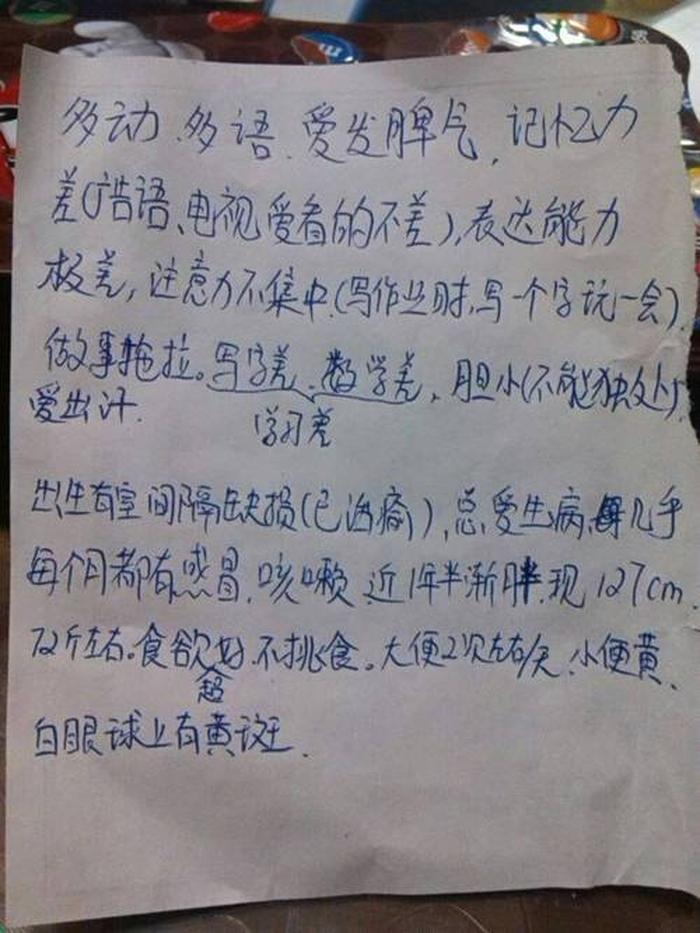 多动、多语、爱发脾气,记忆力
差(广告语、电视爱看的不差),表达能力
极差,注意力不集中(写作业时,写一个字玩一会)
做事拖拉。写字差、数学差,胆小(不能独处)
爱出汗.
学习差
出生有室间隔缺损(已治痊),总爱生病,几乎
每个月都有感冒、咳嗽 近1年半渐胖.现127cm
72斤左右。食欲超好.不挑食。大便2次左右/天,小便黄、
白眼球上有黄斑.